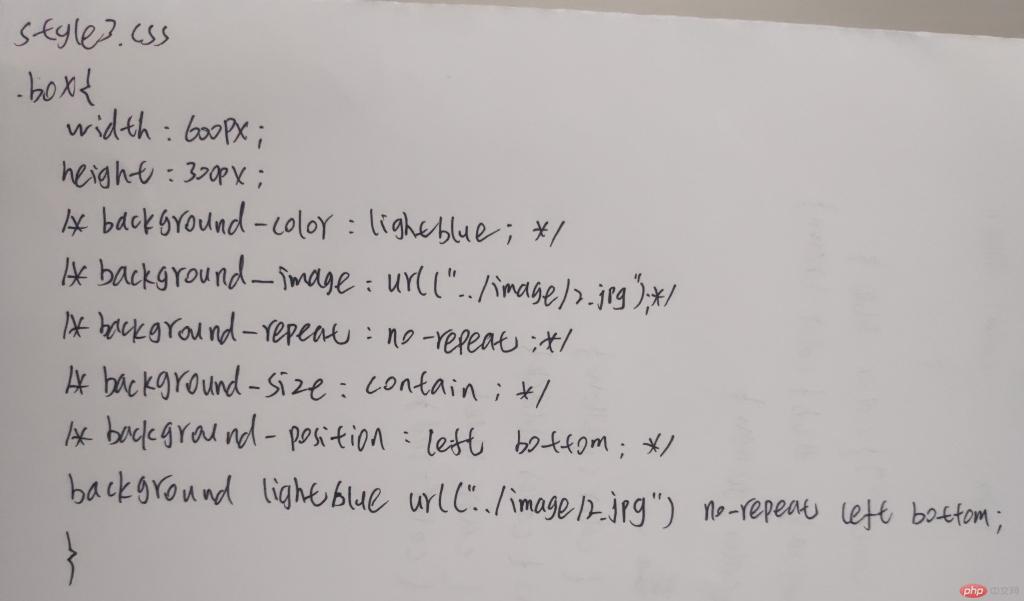 style3.css
.box{
width : 600px ;
height : 300px ;
/* background-color : lightblue ; */
/* background-image : url("../image/2.jpg");*/
/* background-repeat : no-repeat ;*/
/* background-size : contain ; */
/* background-position : left bottom ; */
background lightblue url("../image/2.jpg") no-repeat left bottom ;
}
php 中文网